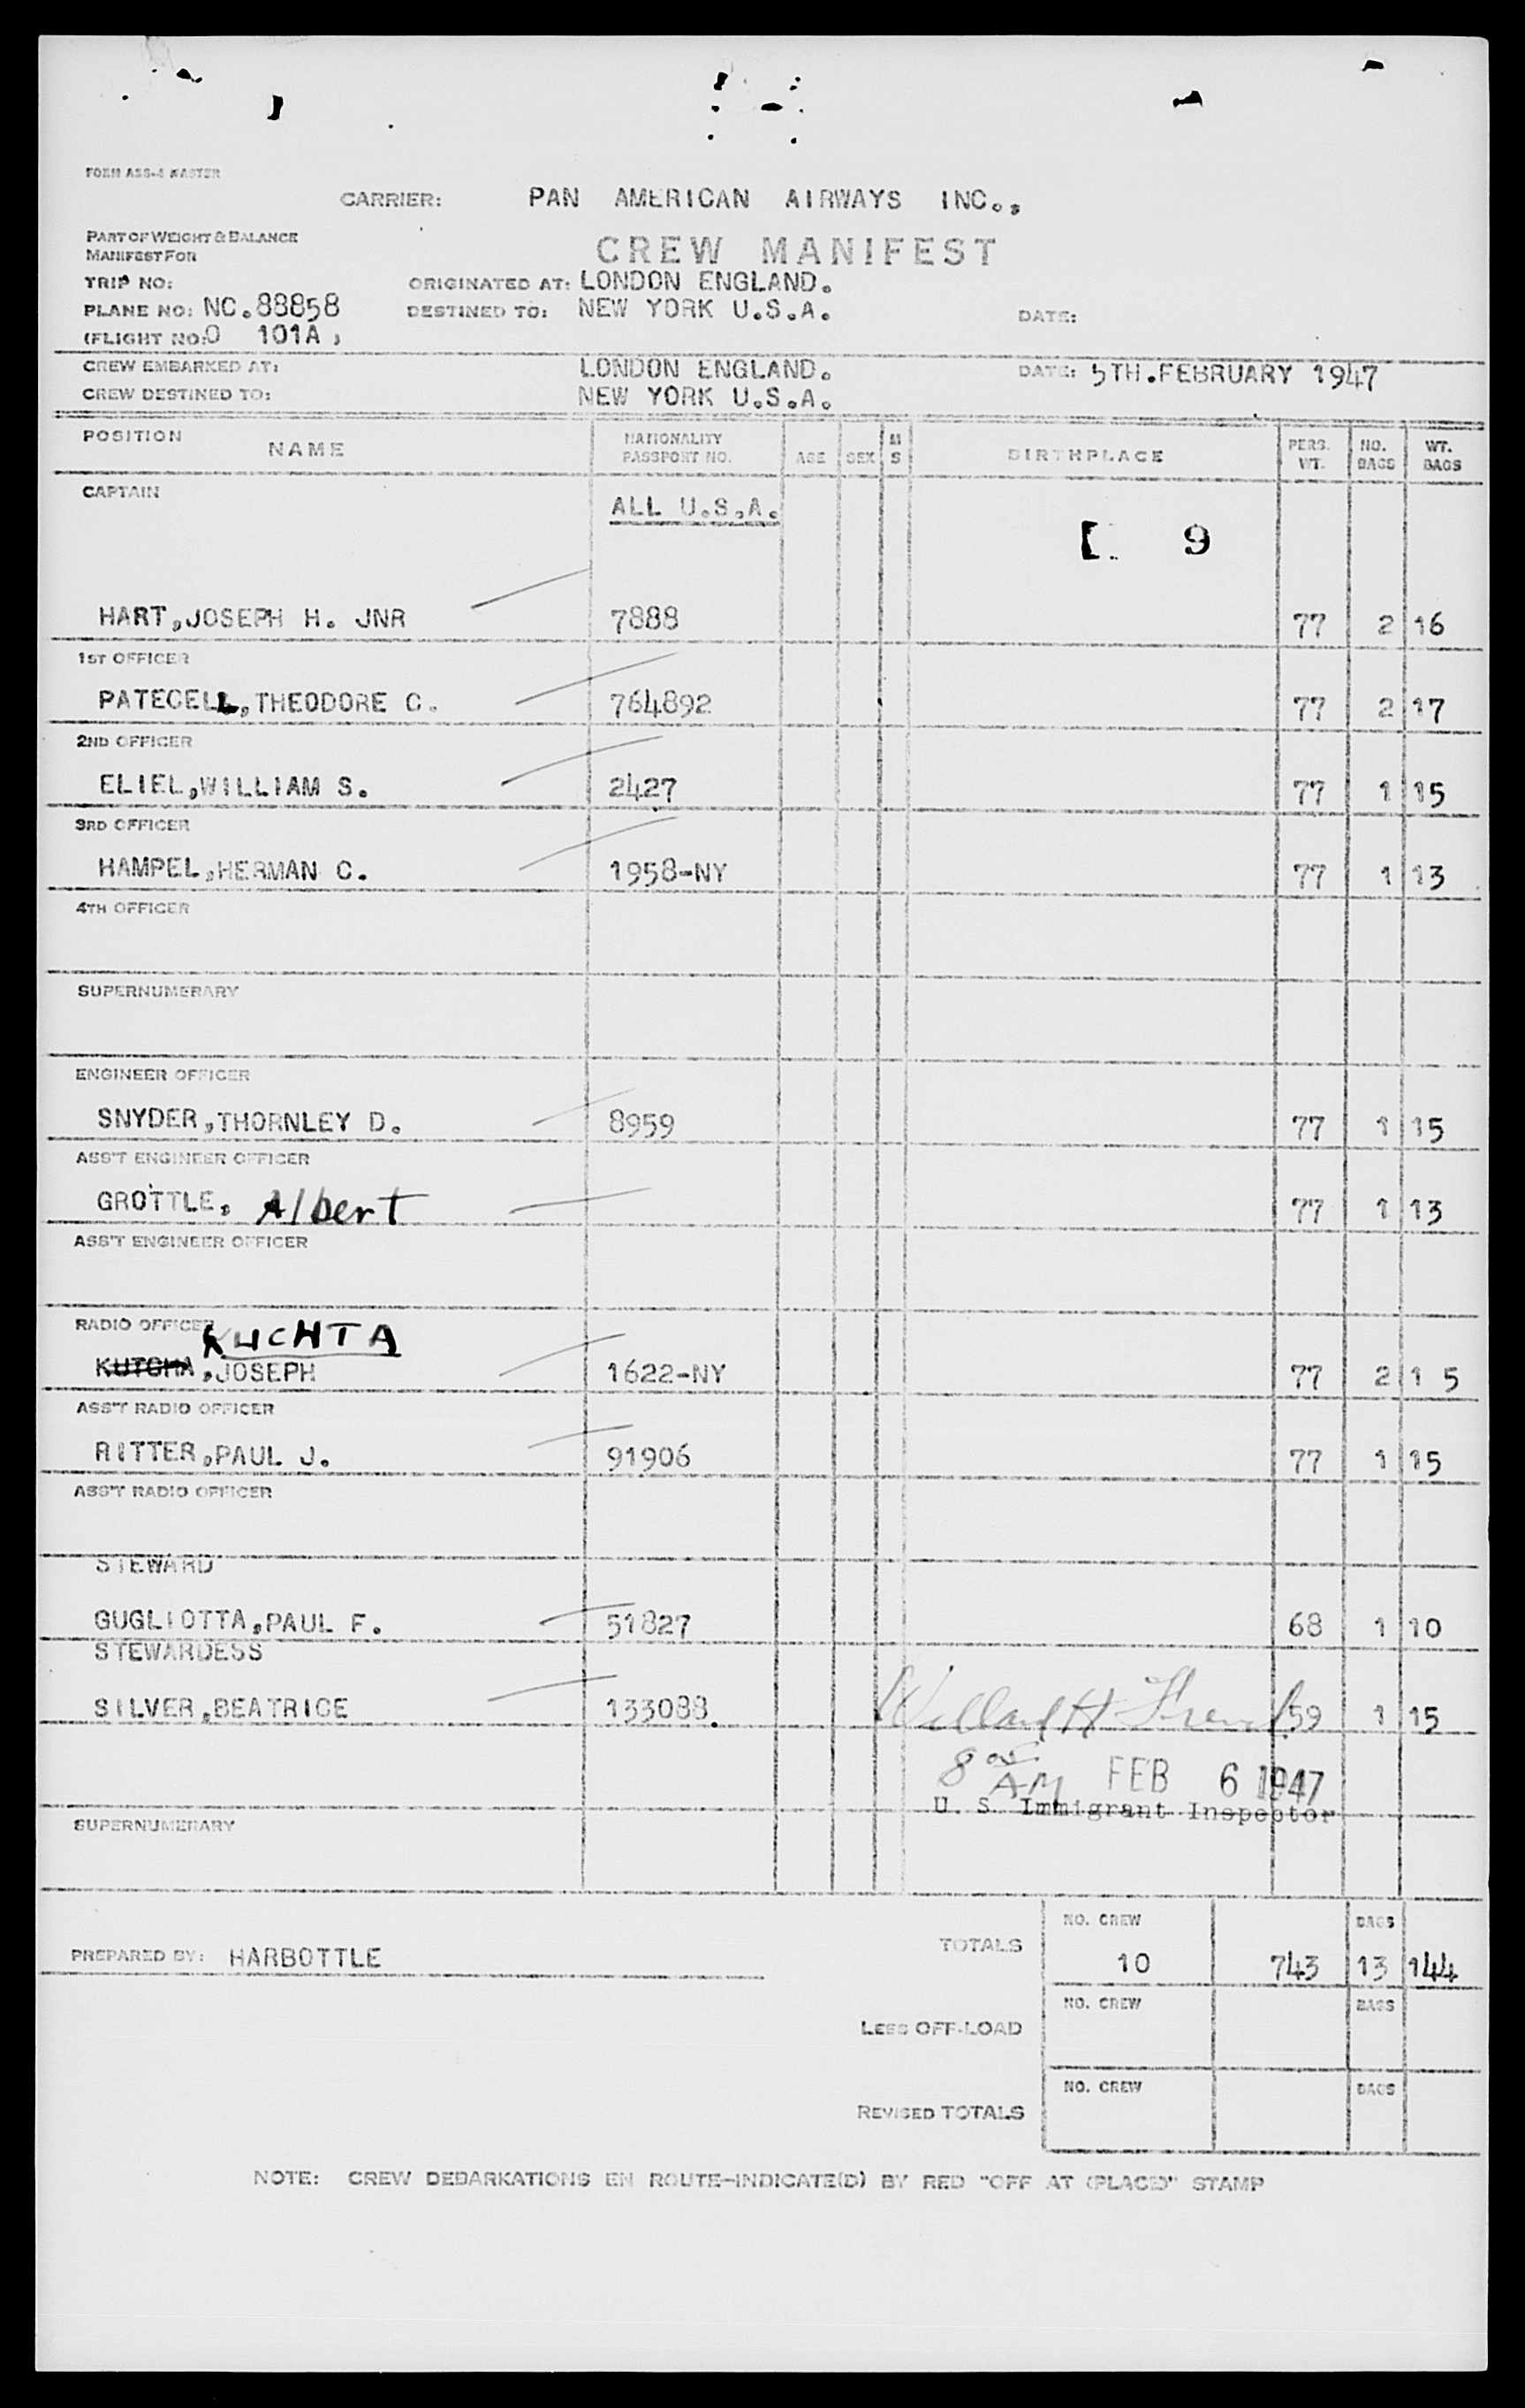 FORM ASS-4 MASTER
CARRIER: PAN AMERICAN AIRWAYS INC.,
PART OF WEIGHT & BALANCE
MANIFEST FOR
CREW MANIFEST
TRIP NO: ORIGINATED AT: LONDON ENGLAND.
PLANE NO: NC.88858 DESTINED TO: NEW YORK U.S.A. DATE:
(FLIGHT NO:O 101A )
CREW EMBARKED AT: LONDON ENGLAND. DATE: 5TH.FEBRUARY 1947
CREW DESTINED TO: NEW YORK U.S.A.
POSITION NAME NATIONALITY PASSPORT NO. AGE SEX M S BIRTHPLACE PERS. WT. NO. BAGS WT. BAGS
CAPTAIN
ALL U.S.A.
9
HART,JOSEPH H. JNR 7888 77 2 16
1ST OFFICER
PATECELL,THEODORE C. 764892 77 2 17
2ND OFFICER
ELIEL,WILLIAM S. 2427 77 1 15
3RD OFFICER
HAMPEL,HERMAN C. 1958-NY 77 1 13
4TH OFFICER
SUPERNUMERARY
ENGINEER OFFICER
SNYDER,THORNLEY D. 8959 77 1 15
ASS'T ENGINEER OFFICER
GROTTLE, Albert 77 1 13
ASS'T ENGINEER OFFICER
RADIO OFFICER
KUCHTA
KUTCHA,JOSEPH 1622-NY 77 2 1 5
ASS'T RADIO OFFICER
RITTER,PAUL J. 91906 77 1 15
ASS'T RADIO OFFICER
STEWARD
GUGLIOTTA,PAUL F. 51827 68 1 10
STEWARDESS
SILVER,BEATRICE 133088. 59 1 15
Willard H
8 AM FEB 6 1947
U. S. Immigrant Inspector
SUPERNUMERARY
NO. CREW BAGS
PREPARED BY: HARBOTTLE TOTALS 10 743 13 144
NO. CREW BAGS
LESS OFF-LOAD
NO. CREW BAGS
REVISED TOTALS
NOTE: CREW DEBARKATIONS EN ROUTE-INDICATE(D) BY RED "OFF AT (PLACE)" STAMP